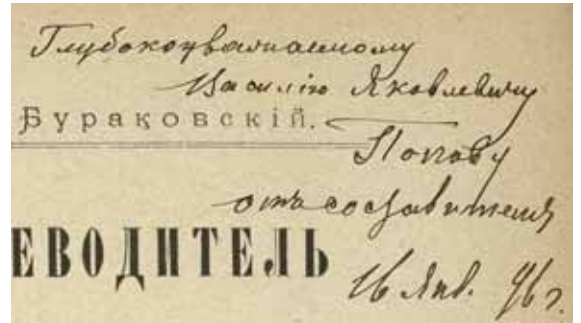 Глубокоуважаемому
Василію Яковлевичу
Бураковскій.
Попову
отъ составителя
ЕВОДИТЕЛЬ
16 Янв. 96 г.